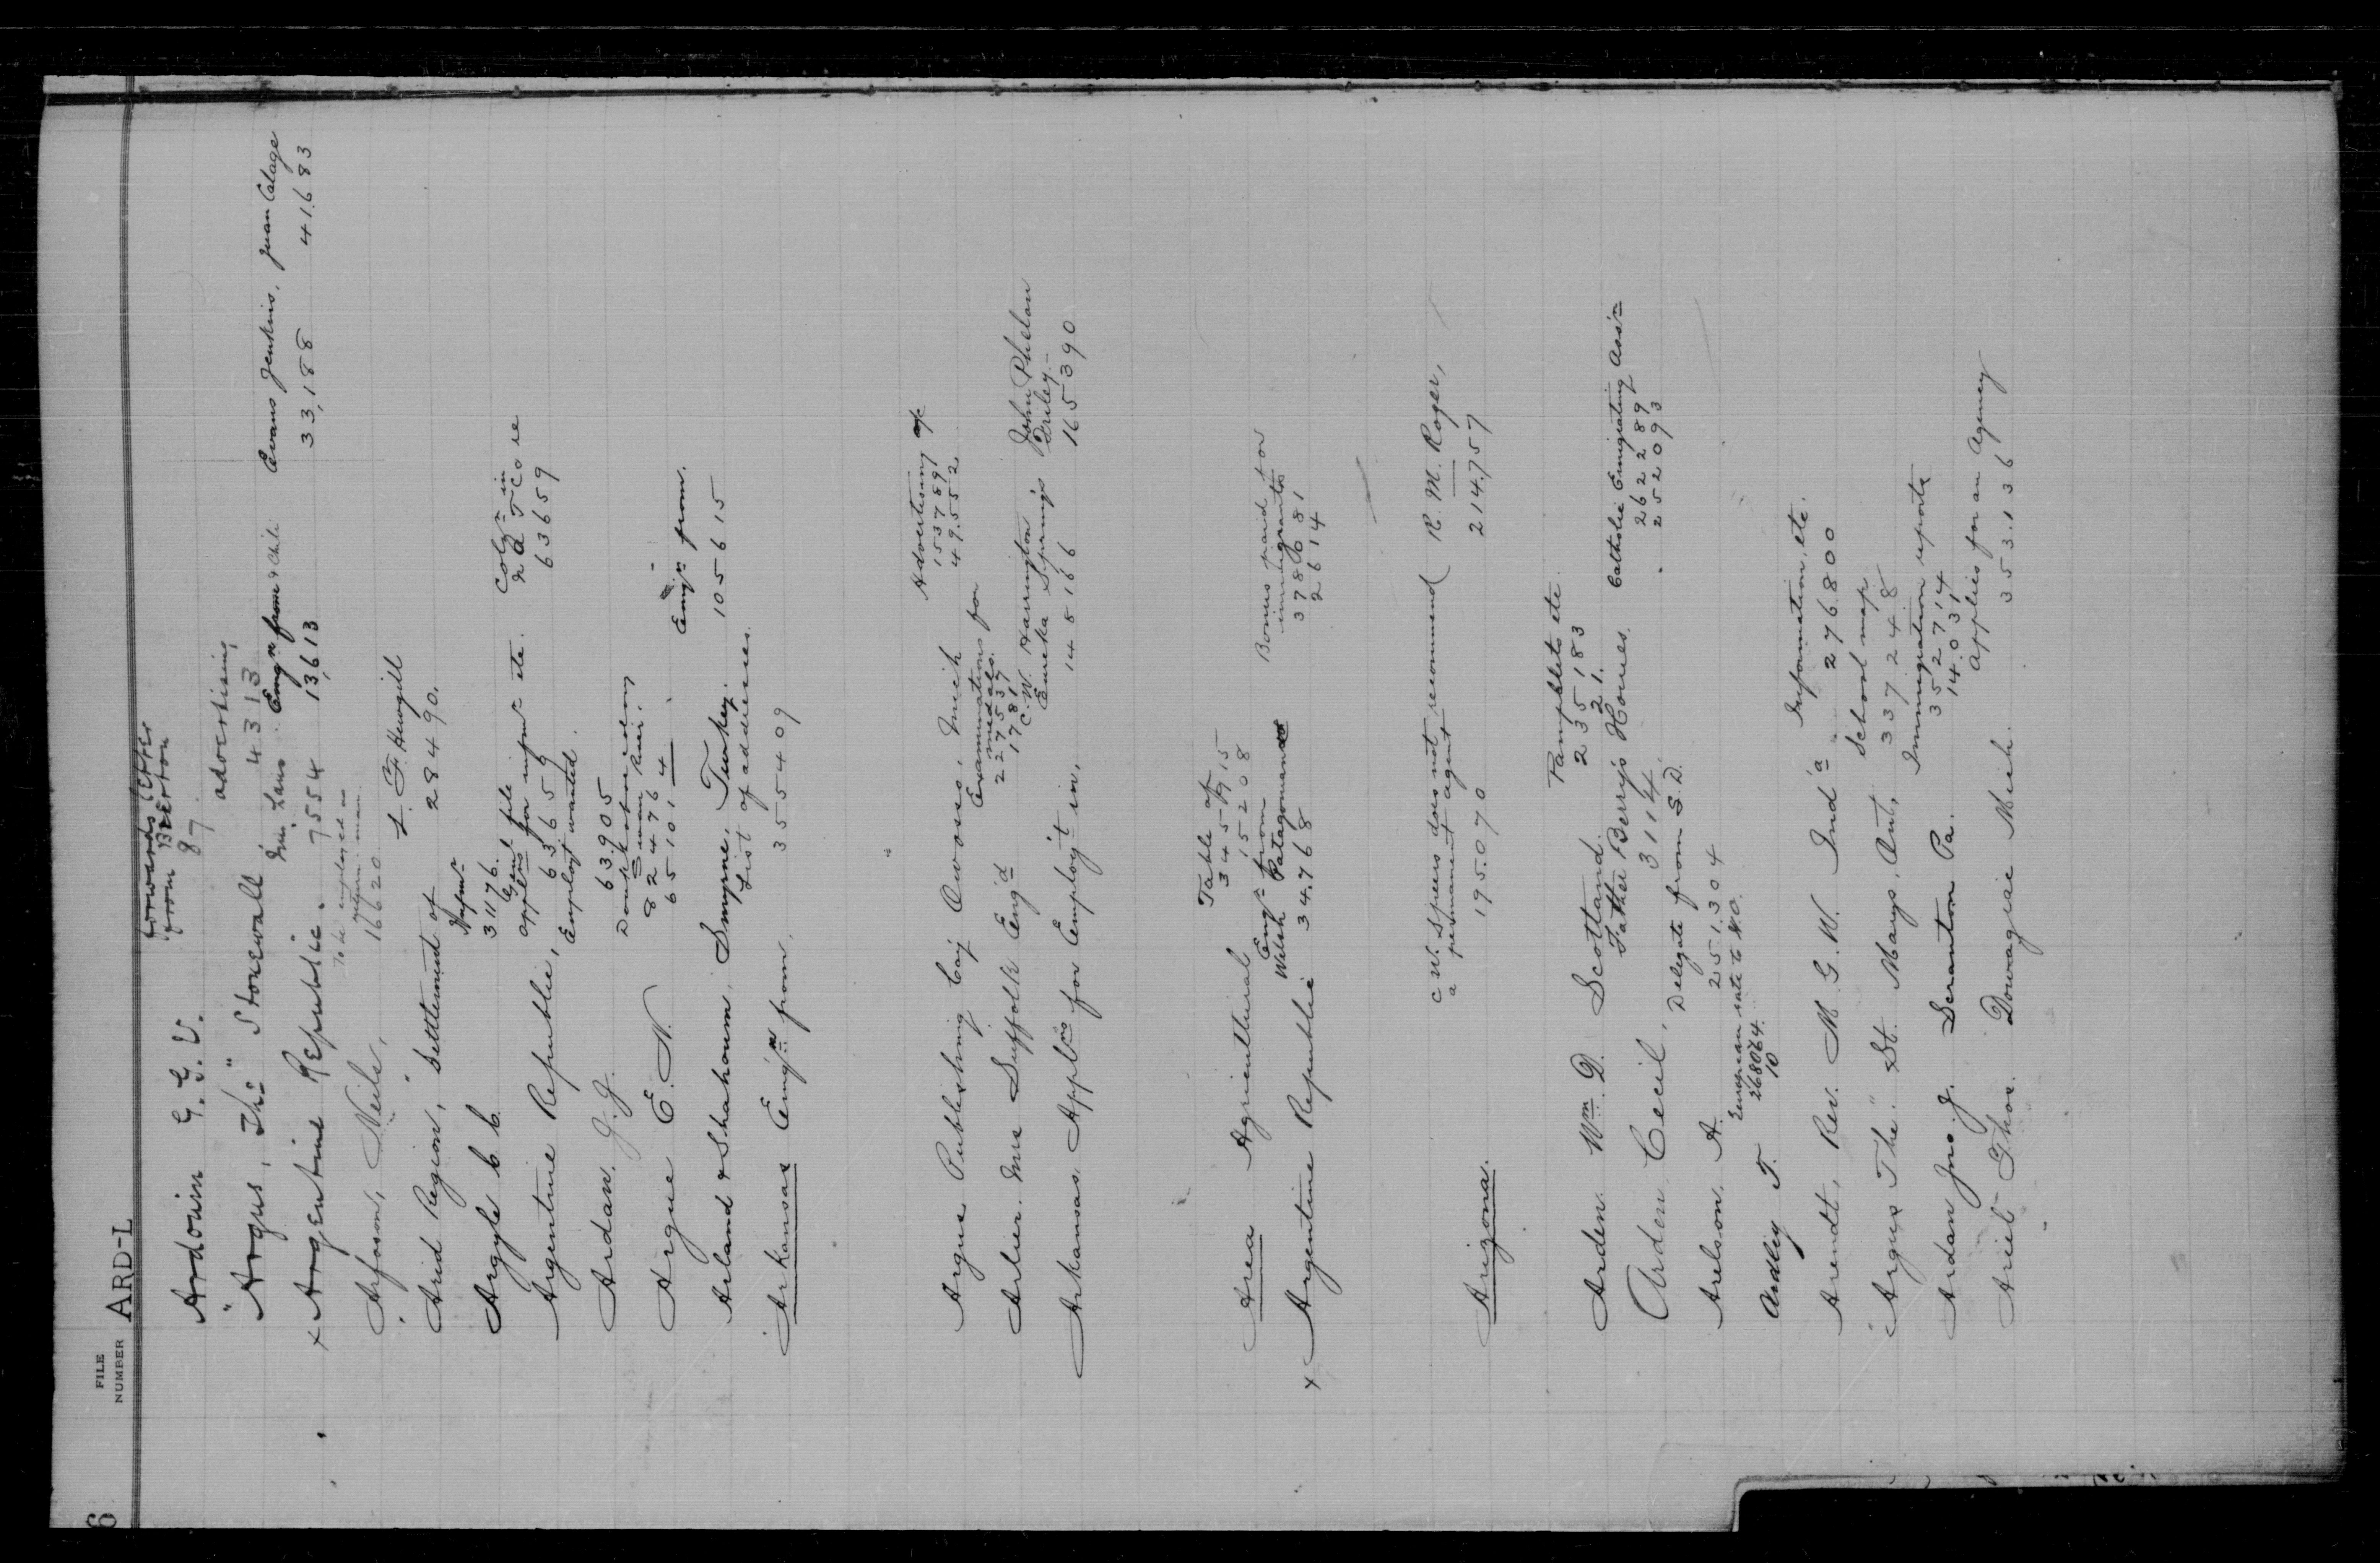 6
FILE
NUMBER
ARD-L
forwards letter
from Brerton
Ardouin G. G. V. 87
advertising
"Argus, The" Stonewall 4313
Imi. Laws. Emig'n from & Chili Evans Jenkins, Juan Calage
x Argentine Republic. 7554 13,613 33,188 41683
To be employed as
return man
Arfoson, Neils, 16620
L. F. Hewgill
Arid Region, settlement of 28490.
Inform'n
Argyle C. C. 31176.
Genl file
Appl'ns for inform'n etc. Col'n in
Argentine Republic, 63659 63659
Employt wanted.
Ardan. J. J. 63905
Doukhobor
Swan River.
82476
Emig'n from.
Argue E. N. 65101 4
Arland & Shahoum, Smyrne, Turkey. 105615
List of addresses.
Arkansas Emig'n from, 355409
Advertising a/c
153789
Argus Publishing Coy Owosso, Mich 49552
Examinations for
medals.
227537
Arlier. Mrs Suffolk Eng'd 1781
C. W. Harrington John Phelan
Eureka Springs Briley
Arkansas, Appl'ns for Employ't in, 148166 165390
Table of
34519 15
Area Agricultural 15208
Emig'n from Bonus paid on
Welsh Patagonians immigrants
378081
x Argentine Republic 34768 2614
C W. Speers does not recommend R. M. Roger,
a permanent agent
Arizona. 195070 214757
Pamphlets etc
Arden Wm D. Scotland. 235183
21.
Father Berry's Homes. Catholic Emigrating Ass'n
262289
Arden, Cecil, 3114 252093
Delegate from S.D.
Arelson, A. 251304
European rate to N.O.
268064.
Ardley T. 10
Information, etc.
Arendt, Rev. M. G. W. Ind'a 276800
School map
"Argus The" St. Marys, Ont, 337248
Immigration reports
352714
Ardan Jno. J. Scranton Pa. 14031
Applies for an Agency
Ariel Thos. Dowagiac Mich. 353136